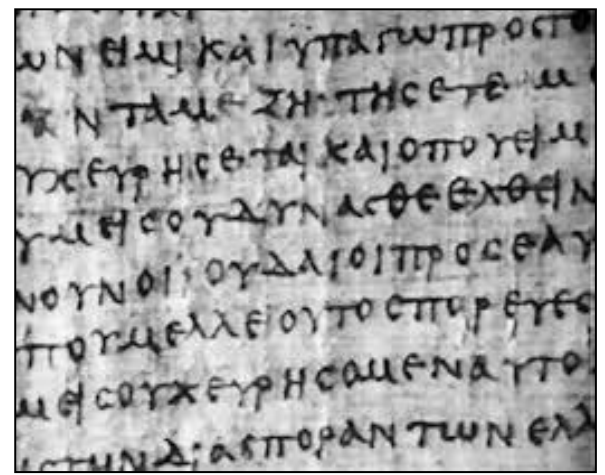 ωΝΕΙΜΙΚΑΙΥΠΑΓωΠΡΟϹΤΟ
ΑΝΤΑΜΕΖΗΤΗϹΕΤΕΜ
ΥΧΕΥΡΗϹΕΤΑΙΚΑΙΟΠΟΥΕΙΜ
ΥΜΕΙϹΟΥΔΥΝΑϹΘΕΕΛΘΕΙΝ
ΝΟΥΝΟΙΙΟΥΔΑΙΟΙΠΡΟϹΕΑΥ
ΠΟΥΜΕΛΛΕΙΟΥΤΟϹΠΟΡΕΥΕϹ
ΜΕΙϹΟΥΧΕΥΡΗϹΟΜΕΝΑΥΤΟ
ΙϹΤΗΝΔΙΑϹΠΟΡΑΝΤωΝΕΛΛ